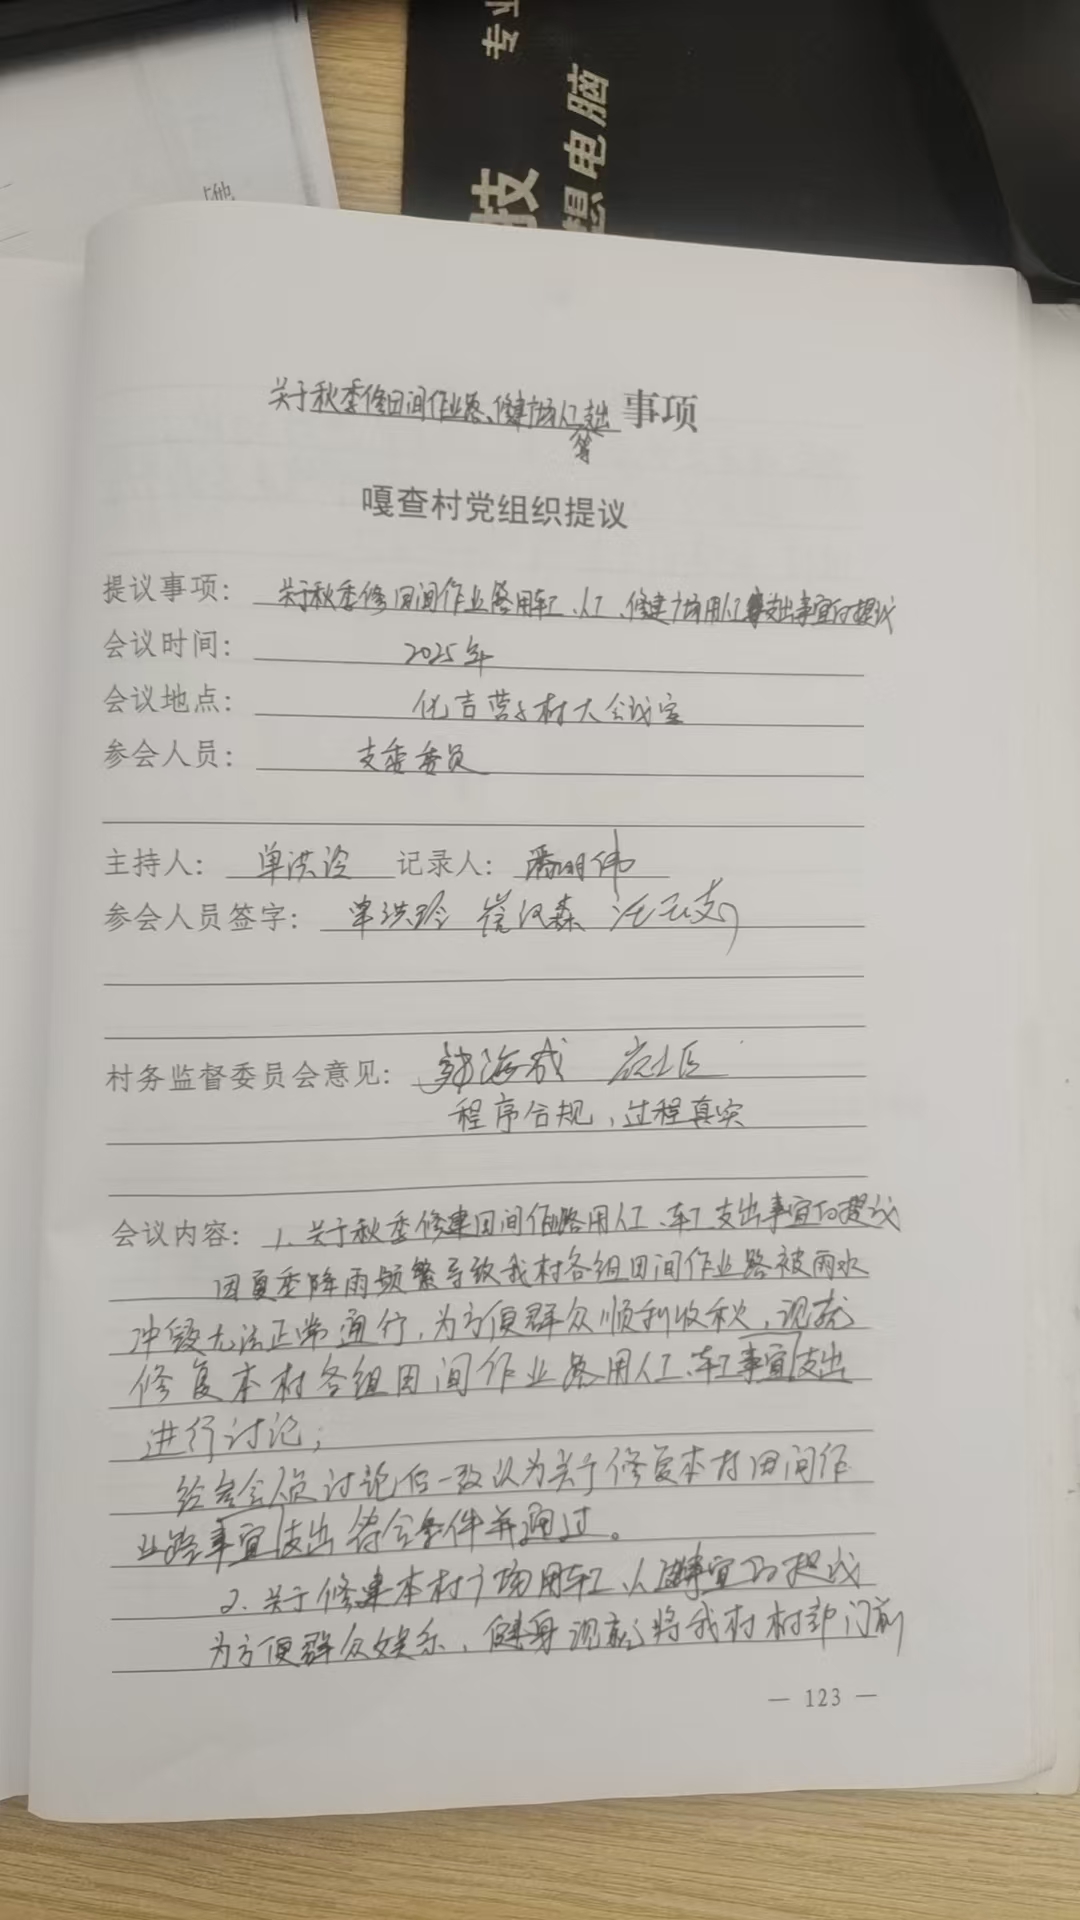 专业
技
想电脑
关于秋季修田间作业路、修建广场人工支出事项
等
嘎查村党组织提议
提议事项: 关于秋季修田间作业路用车工、人工、修建广场用人工支出事宜的提议
会议时间: 2025年
会议地点: 化吉营子村大会议室
参会人员: 支委委员
主持人: 单洪玲 记录人: 潘明伟
参会人员签字: 单洪玲 崔汉森
村务监督委员会意见: 韩海成
程序合规,过程真实
会议内容: 1、关于秋季修建田间作业路用人工、车工支出事宜的提议
因夏季降雨频繁导致我村各组田间作业路被雨水
冲毁无法正常通行,为方便群众顺利收秋,现就
修复本村各组田间作业路用人工、车工事宜支出
进行讨论;
经参会人员讨论后一致认为关于修复本村田间作
业路事宜支出符合条件并通过。
2、关于修建本村广场用车工、人工事宜的提议
为方便群众娱乐、健身现就将我村村部门前
— 123 —